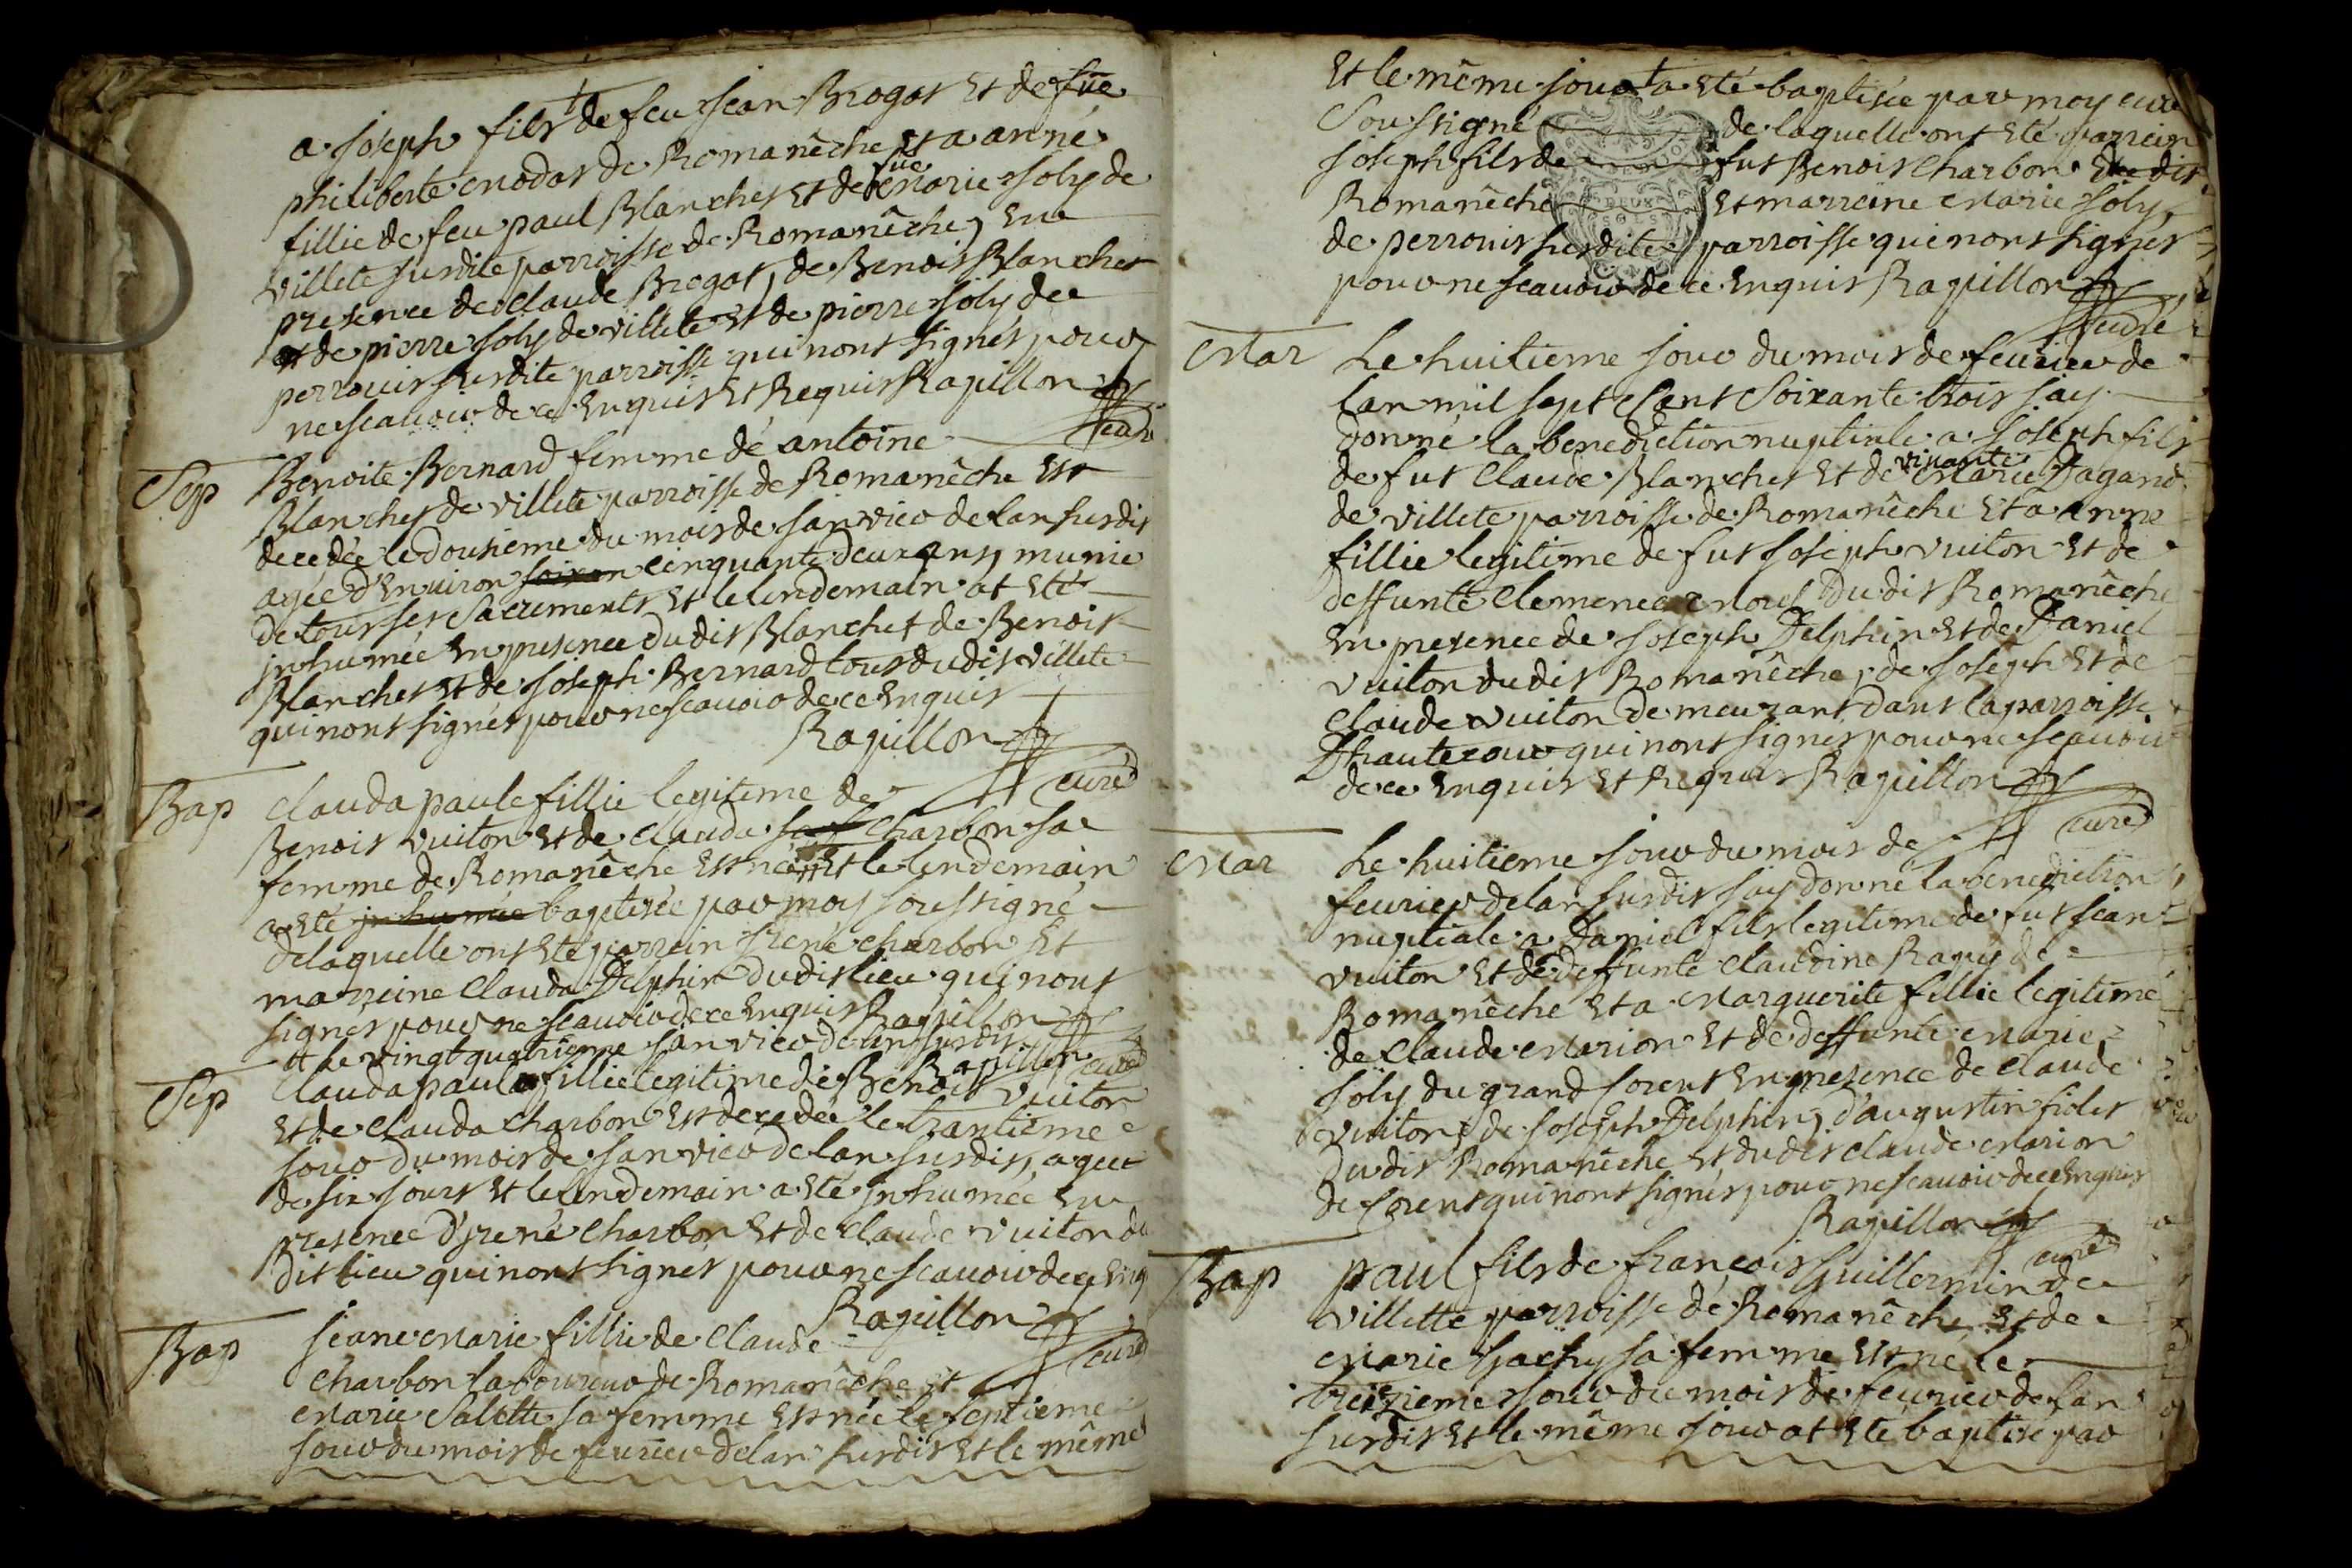 a joseph fils de feu jean Brogat Et de füe
philiberte modas de Romanêche Et a anné
fillie de feu paul Blanchet Et de füe marie joly de
villete susdite parroisse de Romanêche, En
presence de claude Brogat, de Benoit Blanchet
et de pierre joly de villete Et de pierre joly de
perrouis susdite parroisse qui nont signés pour
ne scauoir de ce Enquis Et Requis Rapillon
curé
Sep Benoite Bernard femme de antoine
Blanchet de villete parroisse de Romanêche Est
decedée le dousieme du mois de janvier de lan susdit
agée d'Enuiron soixan cinquante deux ans, munie
de tous ses Sacrements Et le lendemain at Eté
jnhumée En presence dudit Blanchet de Benoit
Blanchet Et de joseph Bernard tous dudit villete
qui nont signés pour ne scauoir de ce Enquis
Rapillon
curé
Bap clauda paule fillie legitime de
Benoit vuiton Et de clauda charbon sa
femme de Romanêche Est née Et le lendemain
a Eté jnhumée baptisée par moy soussigné
de laquelle ont Eté parrein jrené charbon Et
marreine clauda Delphin dudit lieu qui nont
signés pour ne scauoir de ce Enquis Rapillon
et le vingt quatrieme janvier de lan susdit
Rapillon curé
Sep clauda paule fillie legitime de Benoit vuiton
Et de clauda charbon Est decedée le trantieme
jour du mois de janvier de lan susdit, agée
de six jours Et le lendemain a Eté jnhumée En
presence d'jrené charbon Et de claude vuiton du
dit lieu qui nont signés pour ne scauoir de ce Enq
Rapillon
curé
Bap jeane marie fillie de claude
charbon laboureur de Romanêche Et
marie Salette sa femme Est née le septieme
jour du mois de feurier de lan susdit Et le même
Et le même jour a Eté baptisée par moy curé
Soussigné de laquelle ont Eté parrein
joseph fils de fut Benoit charbon du dit
Romanêche Et marreine marie joly
de perrouis susdite parroisse qui nont signés
pour ne scauoir de ce Enquis Rapillon
curé
Mar Le huitieme jour du mois de feurier de
lan mil sept Cent Soixante trois jay
donné la benediction nuptiale a joseph fils
de fut claude Blanchet Et de vivante marie Dagand
de villete parroisse de Romanêche Et a anne
fillie legitime de fut joseph vuiton Et de
deffunte clemence du dit Romanêche
En presence de joseph Delphin Et de Daniel
vuiton dudit Romanêche, de joseph Et de
claude vuiton demeurant dans la parroisse
Dhautecour qui nont signés pour ne scauoir
de ce Enquis Et Requis Rapillon
curé
Mar Le huitieme jour du mois de
feurier de lan susdit jay donné la benediction
nuptiale a Daniel fils legitime de fut jean
vuiton Et de deffunte claudine Rapy de
Romanêche Et a marguerite fillie legitime
de claude marion Et de deffunte marie
joly du grand Corent En presence de claude
vuiton, de joseph Delphin, d'augustin fidet
dudit Romanêche Et dudit claude marion
de Corent qui nont signés pour ne scauoir de ce Enquis
Rapillon
curé
Bap paul fils de francois guillermin de
villette parroisse de Romanêche Et de
marie sa femme Est né le
treizieme jour du mois de feurier de lan
susdit Et le même jour at Eté baptisé par